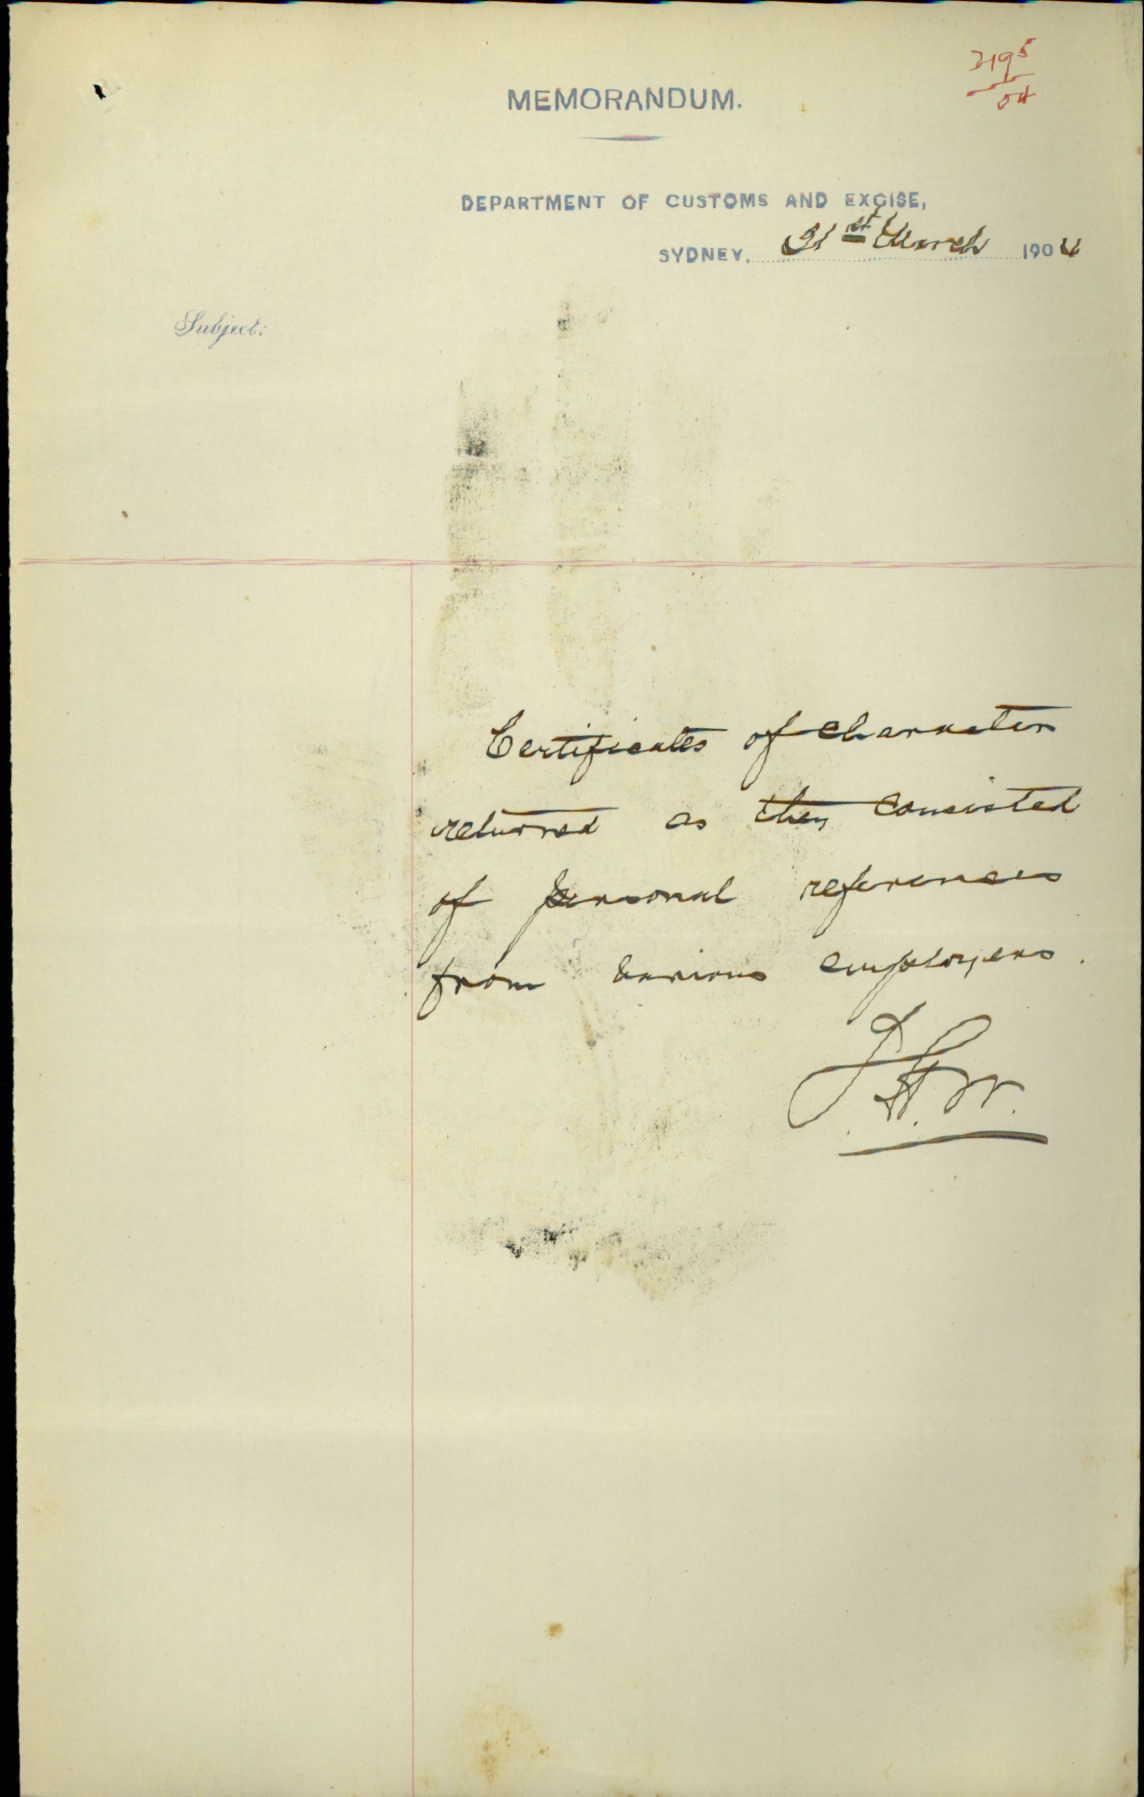 2195
04
MEMORANDUM.
DEPARTMENT OF CUSTOMS AND EXCISE,
SYDNEY. 31st March 1904
Subject:
Certificates of character
returned as they consisted
of personal references
from various employers.